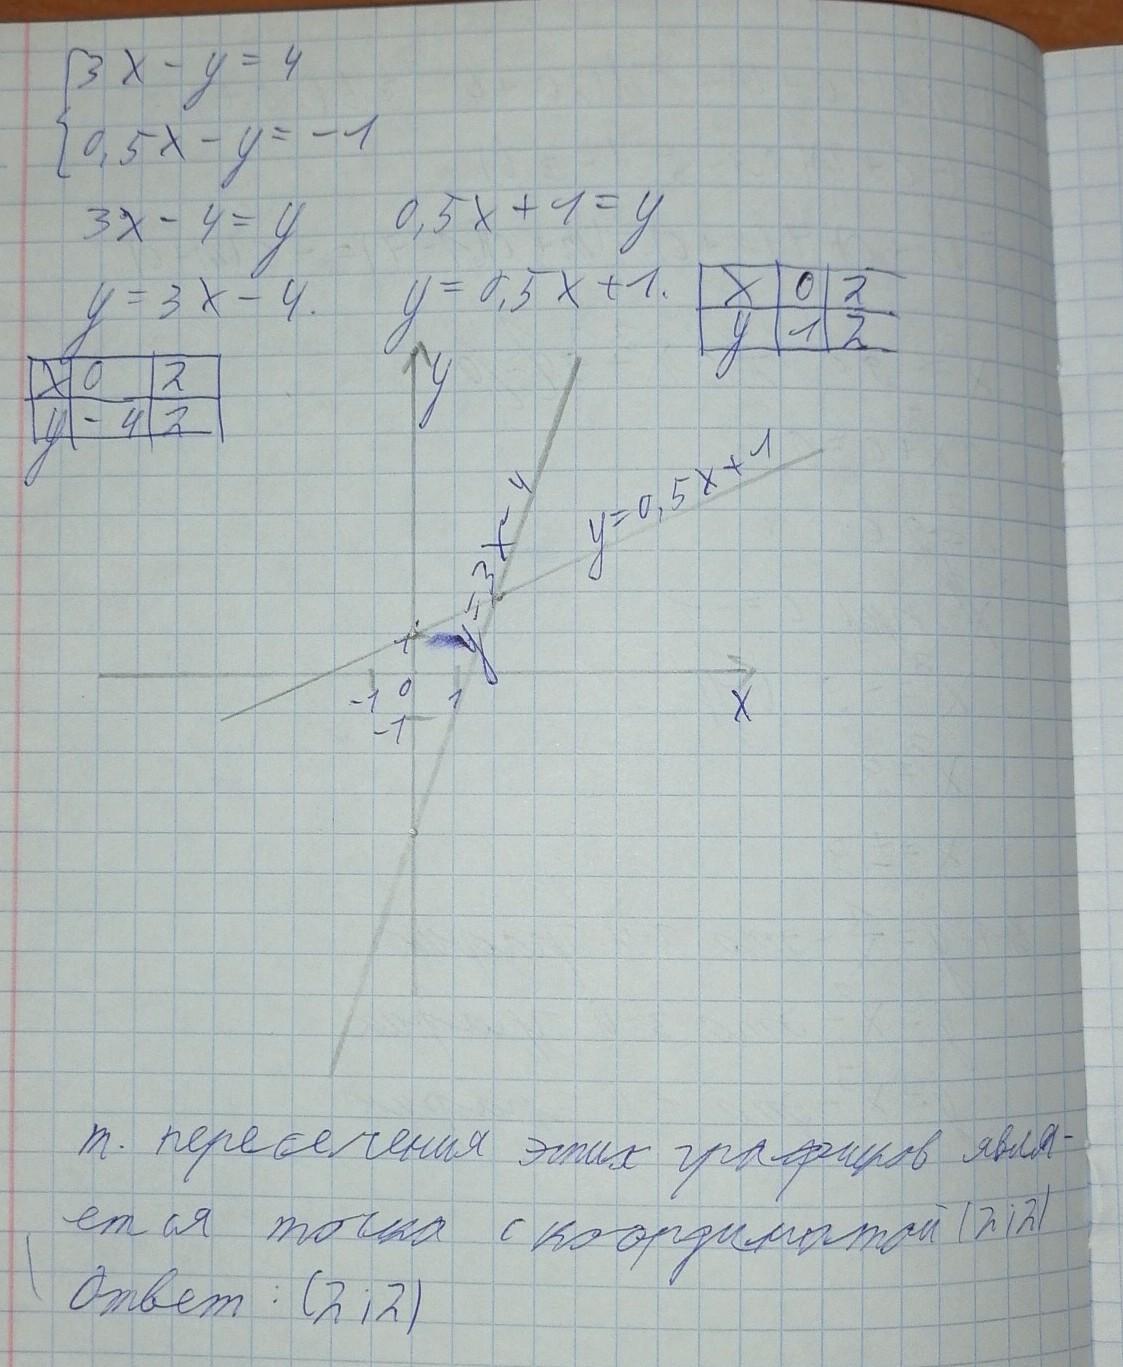 3x - y = 4
0,5x - y = -1
3x - 4 = y 0,5x + 1 = y
y = 3x - 4. y = 0,5x + 1.
x 0 2
y 1 2
x 0 2
y -4 2
y
y = 3x - 4
y = 0,5x + 1
-1 0 1
-1
x
т. пересечения этих графиков явля-
ется точка с координатой (2;2)
Ответ: (2;2)